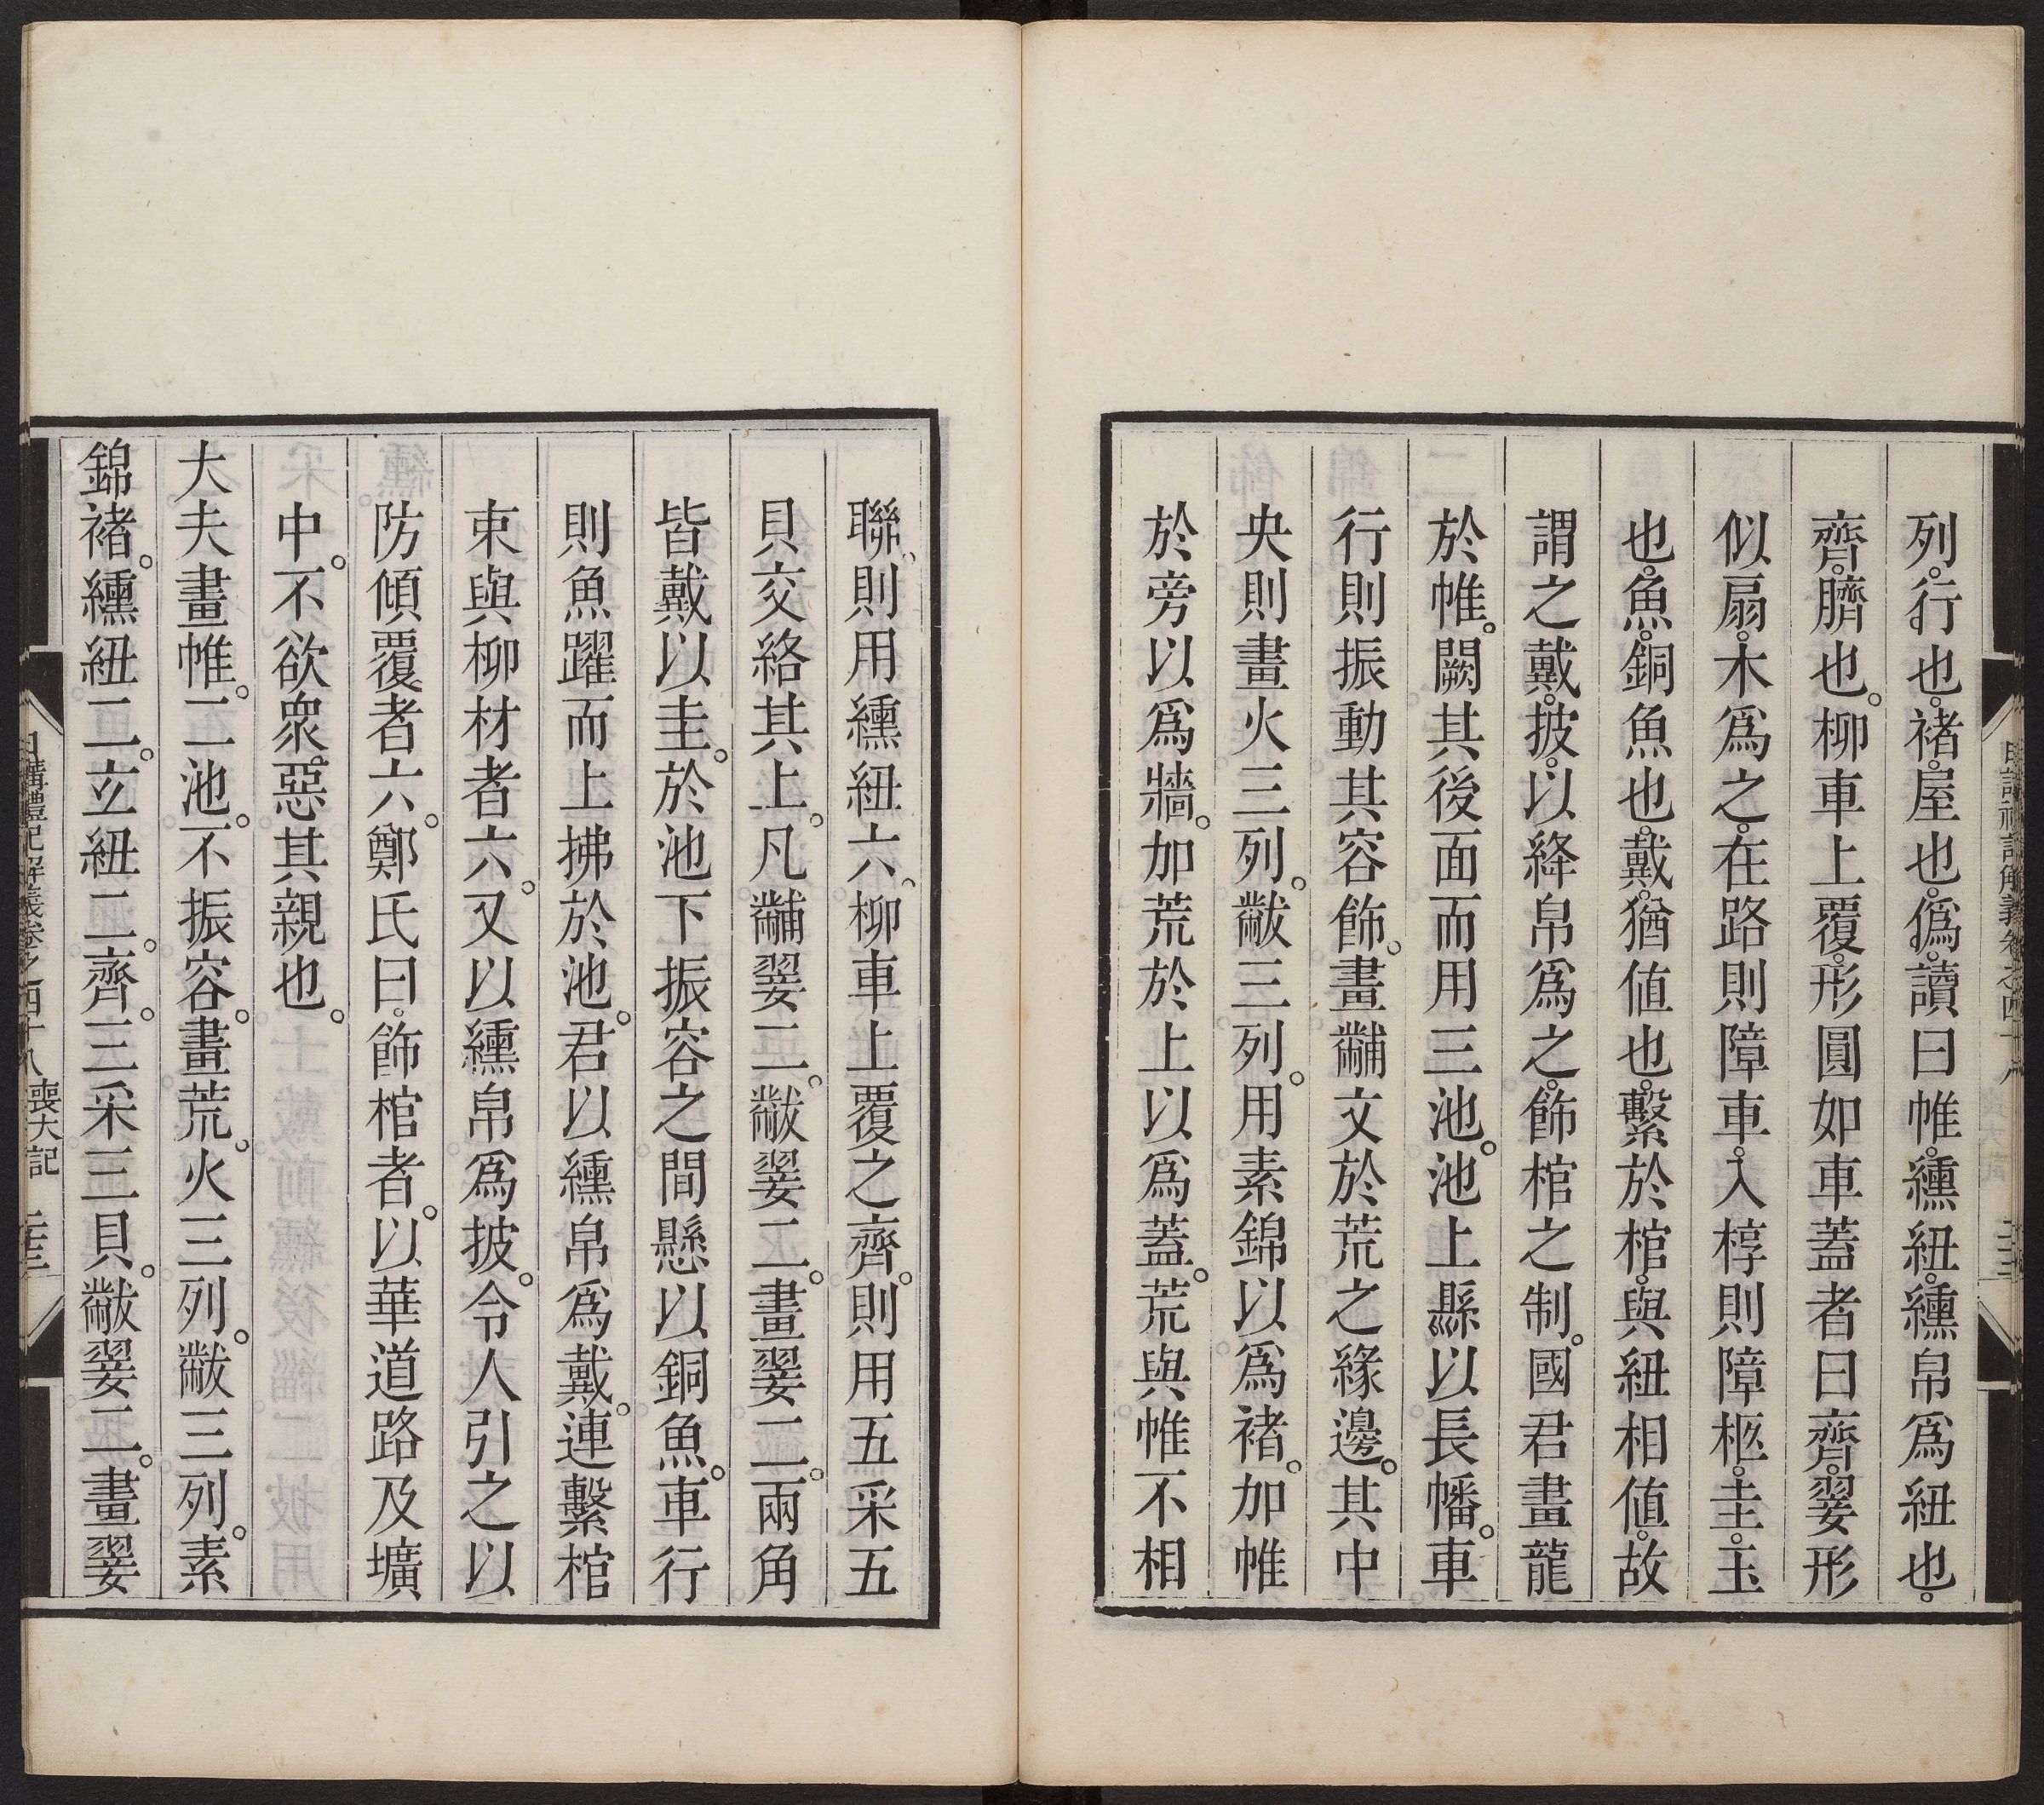 列。行也。褚。屋也。僞。讀曰帷。纁紐。纁帛爲紐也。
齊。臍也。柳車上覆。形圓如車蓋者曰齊。翣形
似扇。木爲之。在路則障車。入椁則障柩。圭。玉
也。魚。銅魚也。戴。猶值也。繫於棺。與紐相值。故
謂之戴。披。以絳帛爲之。飾棺之制。國君畫龍
於帷。闕其後面而用三池。池上縣以長幡。車
行則振動其容飾。畫黼文於荒之緣邊。其中
央則畫火三列。黻三列。用素錦以爲褚。加帷
於旁以爲牆。加荒於上以爲蓋。荒與帷不相
聯、則用纁紐六、柳車上覆之齊。則用五采五
貝交絡其上。凡黼翣二。黻翣二。畫翣二。兩角
皆戴以圭。於池下振容之間懸以銅魚。車行
則魚躍而上拂於池。君以纁帛爲戴。連繫棺
束與柳材者六。又以纁帛爲披。令人引之以
防傾覆者六。鄭氏曰。飾棺者。以華道路及壙
中。不欲衆惡其親也。
大夫畫帷。二池。不振容。畫荒。火三列。黻三列。素
錦褚。纁紐二。玄紐二。齊。三采三貝。黻翣二。畫翣
日講禮記解義卷之四十八 喪大記 二十三